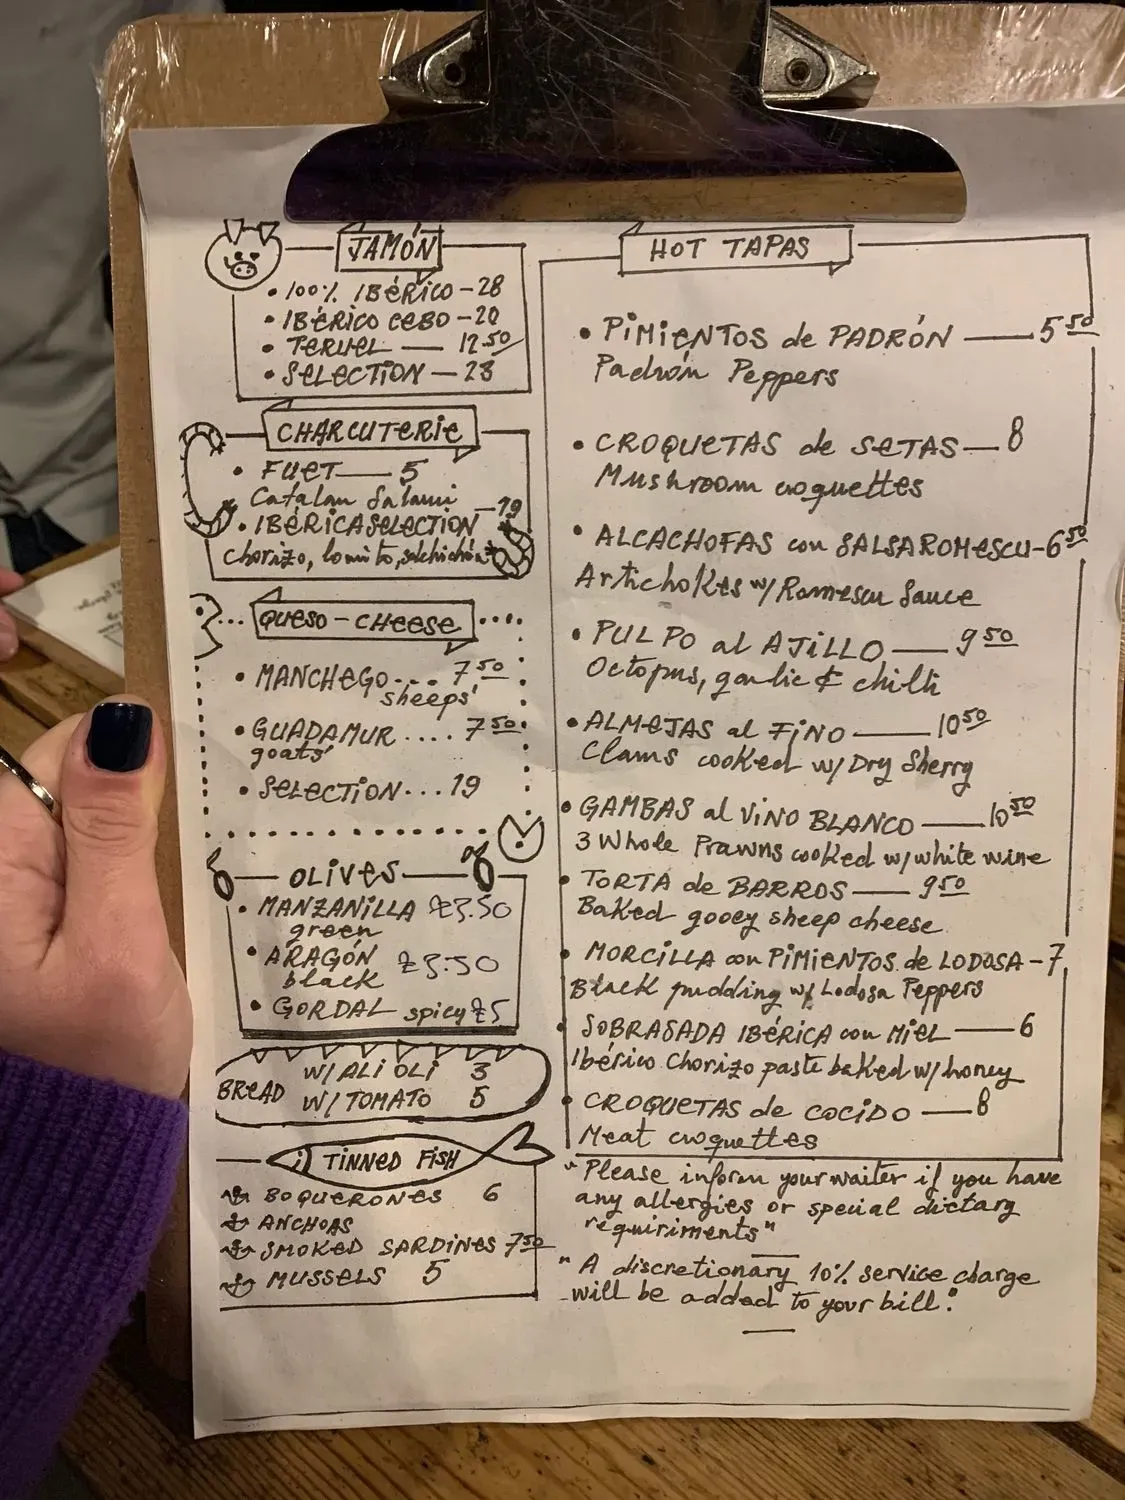 JAMÓN
• 100% IBÉRICO - 28
• IBÉRICO CEBO - 20
• TERUEL — 12.50
• SELECTION — 23
CHARCUTERIE
• FUET — 5
Catalan Salami
• IBÉRICA SELECTION — 19
Chorizo, lomito, salchichón
QUESO - CHEESE
• MANCHEGO... 7.50
sheeps'
• GUADAMUR .... 7.50
goats'
• SELECTION... 19
OLIVES
• MANZANILLA £3.50
green
• ARAGÓN £3.50
black
• GORDAL spicy £5
BREAD
W/ ALIOLI 3
W/ TOMATO 5
TINNED FISH
BOQUERONES 6
ANCHOAS
SMOKED SARDINES 7.50
MUSSELS 5
HOT TAPAS
• PIMIENTOS de PADRÓN — 5.50
Padrón Peppers
• CROQUETAS de SETAS — 8
Mushroom croquettes
• ALCACHOFAS con SALSA ROMESCU - 6.50
Artichokes w/ Romescu Sauce
• PULPO al AJILLO — 9.50
Octopus, garlic & chilli
• ALMEJAS al FINO — 10.50
Clams cooked w/ Dry Sherry
• GAMBAS al VINO BLANCO — 10.50
3 Whole Prawns cooked w/ white wine
• TORTA de BARROS — 9.50
Baked gooey sheep cheese
• MORCILLA con PIMIENTOS de LODOSA - 7
Black pudding w/ Lodosa Peppers
• SOBRASADA IBÉRICA con MIEL — 6
Ibérico Chorizo paste baked w/ honey
• CROQUETAS de COCIDO — 8
Meat croquettes
"Please inform your waiter if you have
any allergies or special dietary
requiriments"
"A discretionary 10% service charge
will be added to your bill."